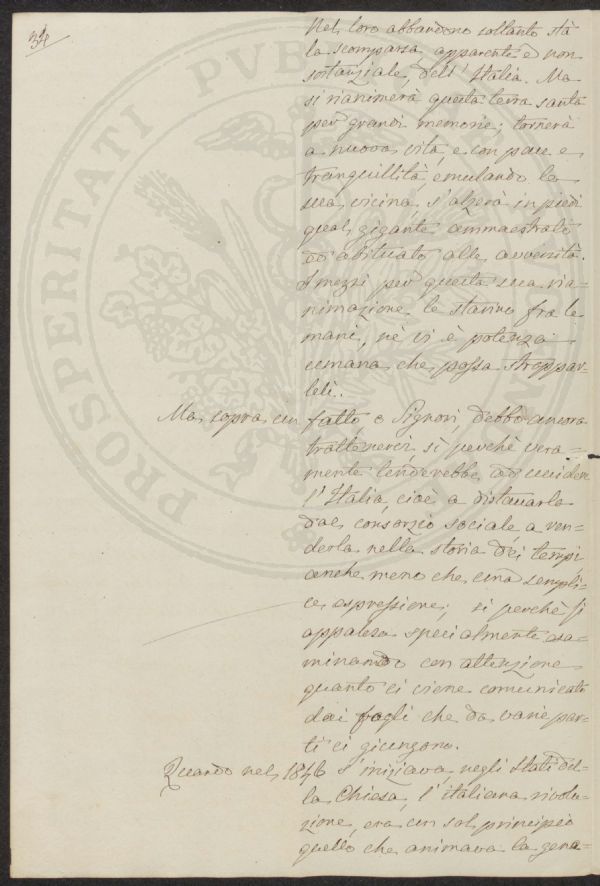 34
Nel loro abbandono soltanto stà
la scomparsa apparente e non
sostanziale, dell'Italia. Ma
si rianimerà questa terra santa
per grandi memorie; tornerà
a nuova vita, e con pace e
tranquillità, emulando la
sua vicina, s'alzerà in piedi
qual gigante ammaestrato
ed abituato alle avversità.
I mezzi per questa sua ria=
nimazione le stanno fra le
mani, nè vi è potenza
umana che possa stroppar=
leli.
Ma sopra un fatto, o Signori, debbo ancora
trattenervi, sì perchè vera=
mente tenderebbe ad uccidere
l'Italia, cioè a distaccarla
dal consorzio sociale a ren=
derla nella storia dei tempi
anche meno che una sempli=
ce espressione; sì perchè si
appalesa specialmente esa=
minando con attenzione
quanto ci viene comunicato
dai fogli che da varie par=
ti ci giungono.
Quando nel 1846 s'iniziava negli Stati del=
la Chiesa, l'italiana rivolu=
zione, era un sol principio
quello che animava la gene=
PROSPERITATI PVBLICAE